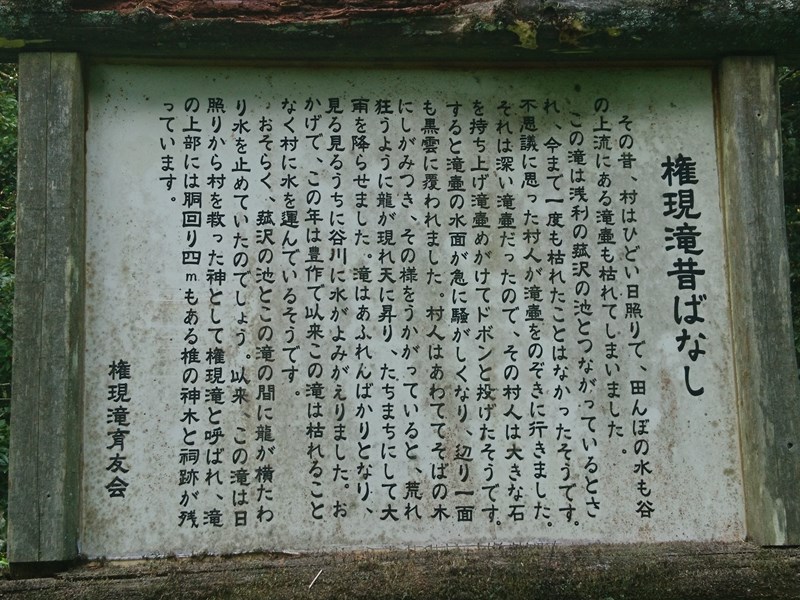 権現滝昔ばなし
その昔、村はひどい日照りで、田んぼの水も谷
の上流にある滝壷も枯れてしまいました。
この滝は浅利の菰沢の池とつながっているとさ
れ、今まで一度も枯れたことはなかったそうです。
不思議に思った村人が滝壷をのぞきに行きました。
それは深い滝壷だったので、その村人は大きな石
を持ち上げ滝壷めがけてドボンと投げたそうです。
すると滝壷の水面が急に騒がしくなり、辺り一面
も黒雲に覆われました。村人はあわててそばの木
にしがみつき、その様をうかがっていると、荒れ
狂うように龍が現れ天に昇り、たちまちにして大
雨を降らせました。滝はあふれんばかりとなり、
見る見るうちに谷川に水がよみがえりました。お
かげで、この年は豊作で以来この滝は枯れること
なく村に水を運んでいるそうです。
おそらく、菰沢の池とこの滝の間に龍が横たわ
り水を止めていたのでしょう。以来、この滝は日
照りから村を救った神として権現滝と呼ばれ、滝
の上部には胴回り四mもある椎の神木と祠跡が残
っています。
権現滝育友会